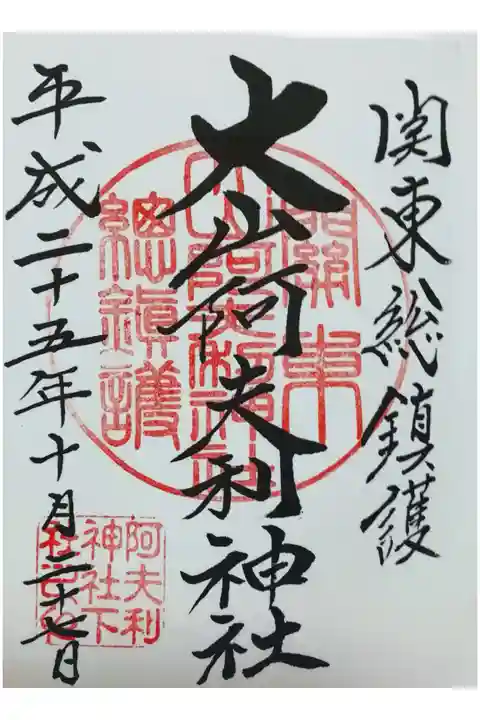 関東総鎮護
大山阿夫利神社
平成二十五年十月二十七日
關東
山阿夫利神社
總鎮護
阿夫利
神社下
社之印